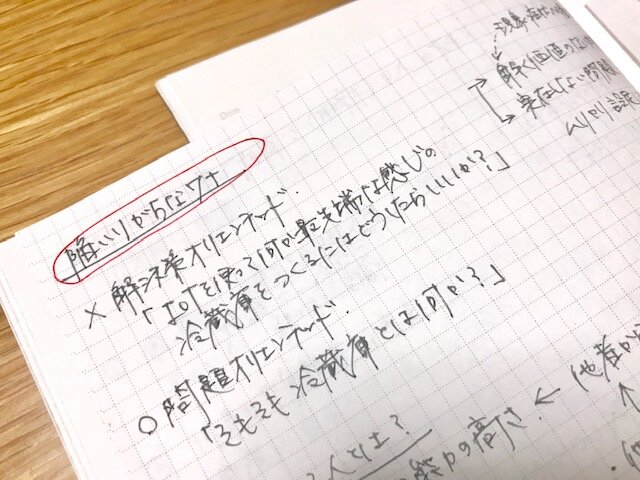 陥いりがちなワナ
× 解決策オリエンテッド.
「IoTを使って何か最先端な感じの
冷蔵庫をつくるにはどうしたらいいか?」
○ 問題オリエンテッド.
「そもそも冷蔵庫とは何か?」
解く価値の
実在しない問題
ムリヤリ設定
Date
人とは?
の高さ ← (他者